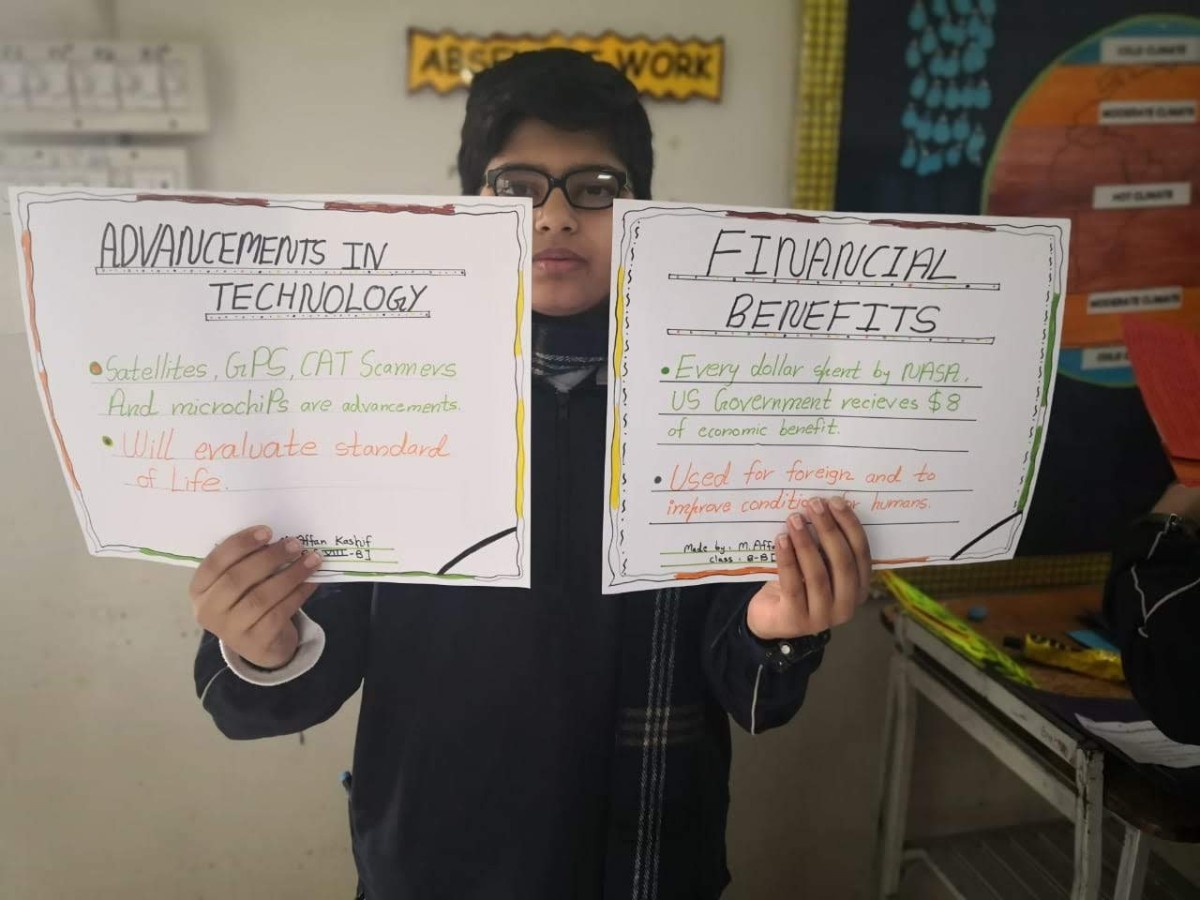 ABSE WORK
COLD CLIMATE
MODERATE CLIMATE
HOT CLIMATE
MODERATE CLIMATE
COLD
ADVANCEMENTS IN
TECHNOLOGY
Satellites, GPS, CAT Scanners
And microchips are advancements.
Will evaluate standard
of Life.
Affan Kashif
VIII-BI
FINANCIAL
BENEFITS
Every dollar spent by NASA,
US Government recieves $8
of economic benefit.
Used for foreign and to
improve condition for humans.
Made by: M. Affa
class: 8-BI